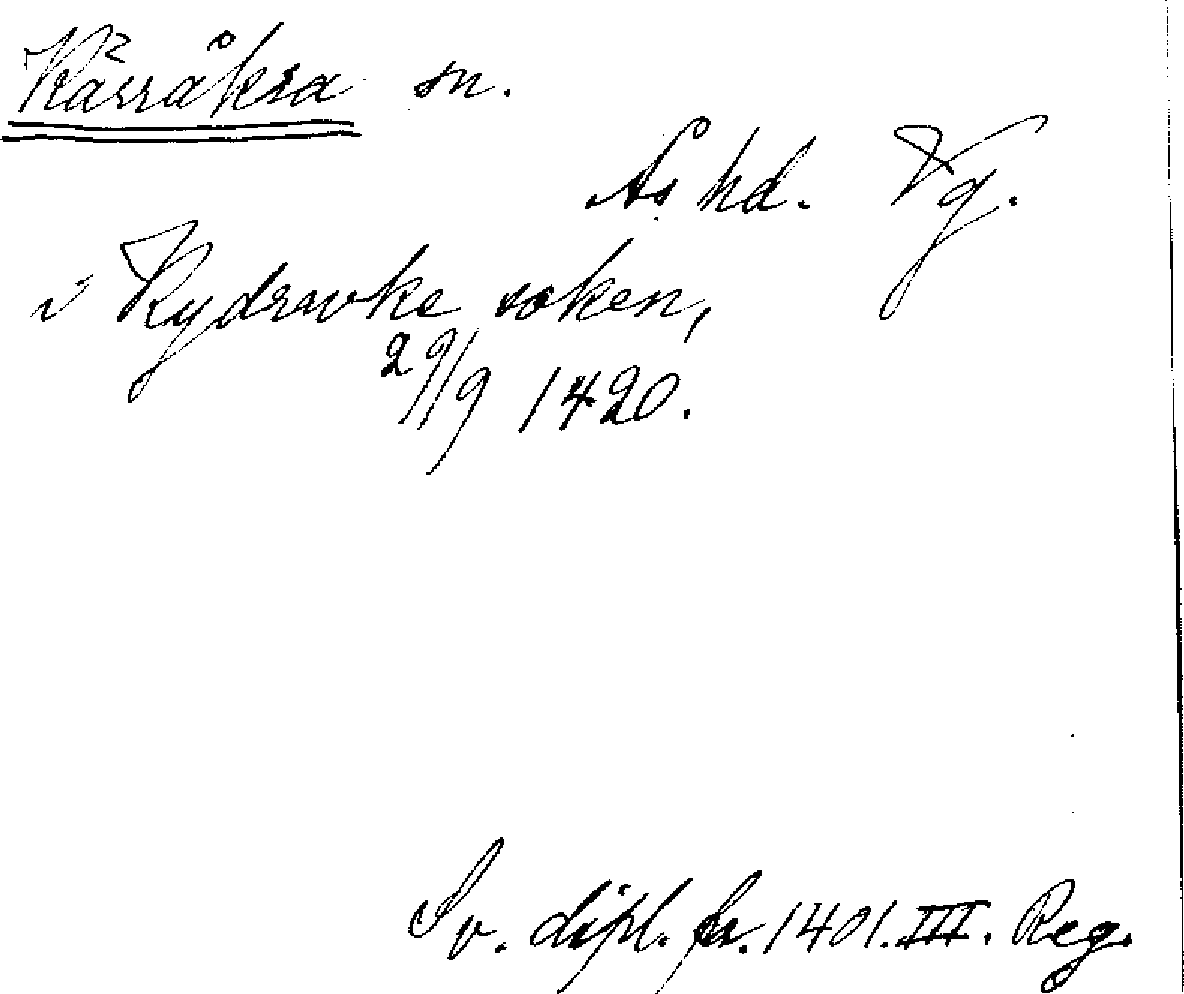 Kärråkra sn.
Ås hd. Vg.
i soken,
29/9 1420.
Sv. dipl. fr. 1401. III. Reg.